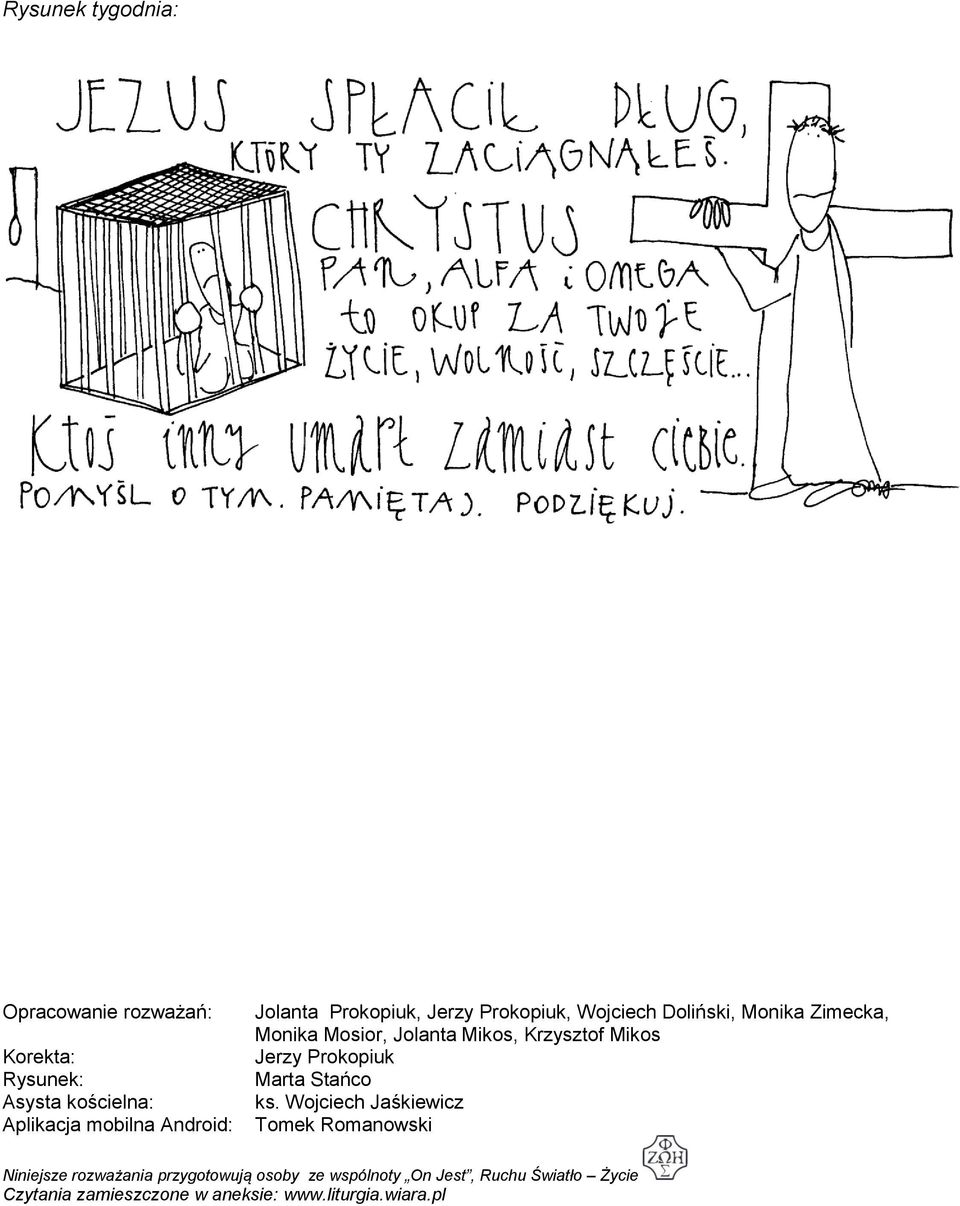 Rysunek tygodnia:
JEZUS SPŁACIŁ DŁUG,
KTÓRY TY ZACIĄGNĄŁEŚ.
CHRYSTUS
PAN, ALFA i OMEGA
to OKUP ZA TWOJE
ŻYCIE, WOLNOŚĆ, SZCZĘŚCIE...
Ktoś inny umarł zamiast ciebie.
POMYŚL O TYM. PAMIĘTAJ. PODZIĘKUJ.
Opracowanie rozważań: Jolanta Prokopiuk, Jerzy Prokopiuk, Wojciech Doliński, Monika Zimecka,
Monika Mosior, Jolanta Mikos, Krzysztof Mikos
Korekta: Jerzy Prokopiuk
Rysunek: Marta Stańco
Asysta kościelna: ks. Wojciech Jaśkiewicz
Aplikacja mobilna Android: Tomek Romanowski
Φ
ΖΩΗ
Σ
Niniejsze rozważania przygotowują osoby ze wspólnoty „On Jest”, Ruchu Światło – Życie
Czytania zamieszczone w aneksie: www.liturgia.wiara.pl